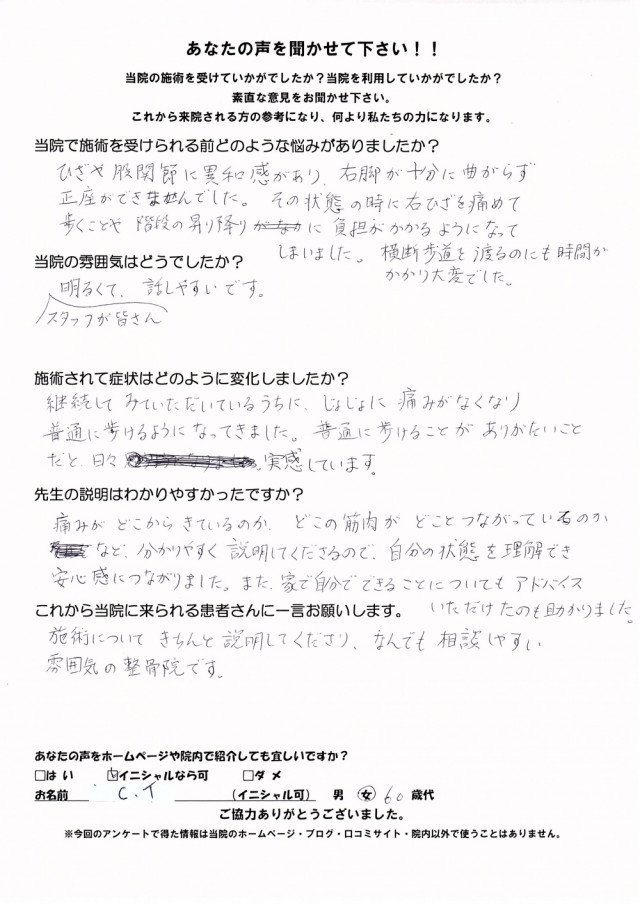 あなたの声を聞かせて下さい！！
当院の施術を受けていかがでしたか？当院を利用していかがでしたか？
素直な意見をお聞かせ下さい。
これから来院される方の参考になり、何より私たちの力になります。
当院で施術を受けられる前どのような悩みがありましたか？
ひざや股関節に異和感があり、右脚が十分に曲がらず
正座ができませんでした。その状態の時に右ひざを痛めて
歩くことや階段の昇り降りに負担がかかるようになって
しまいました。横断歩道を渡るのにも時間が
かかり大変でした。
当院の雰囲気はどうでしたか？
スタッフが皆さん
明るくて、話しやすいです。
施術されて症状はどのように変化しましたか？
継続してみていただいているうちに、じょじょに痛みがなくなり
普通に歩けるようになってきました。普通に歩けることがありがたいこと
だと、日々実感しています。
先生の説明はわかりやすかったですか？
痛みがどこからきているのか、どこの筋肉がどことつながっているのか
など、分かりやすく説明してくださるので、自分の状態を理解でき
安心感につながりました。また、家で自分でできることについてもアドバイス
いただけたのも助かりました。
これから当院に来られる患者さんに一言お願いします。
施術についてきちんと説明してくださり、なんでも相談しやすい
雰囲気の整骨院です。
あなたの声をホームページや院内で紹介しても宜しいですか？
□はい ☑イニシャルなら可 □ダメ
お名前 C.T （イニシャル可） 男 女 60歳代
ご協力ありがとうございました。
※今回のアンケートで得た情報は当院のホームページ・ブログ・口コミサイト・院内以外で使うことはありません。